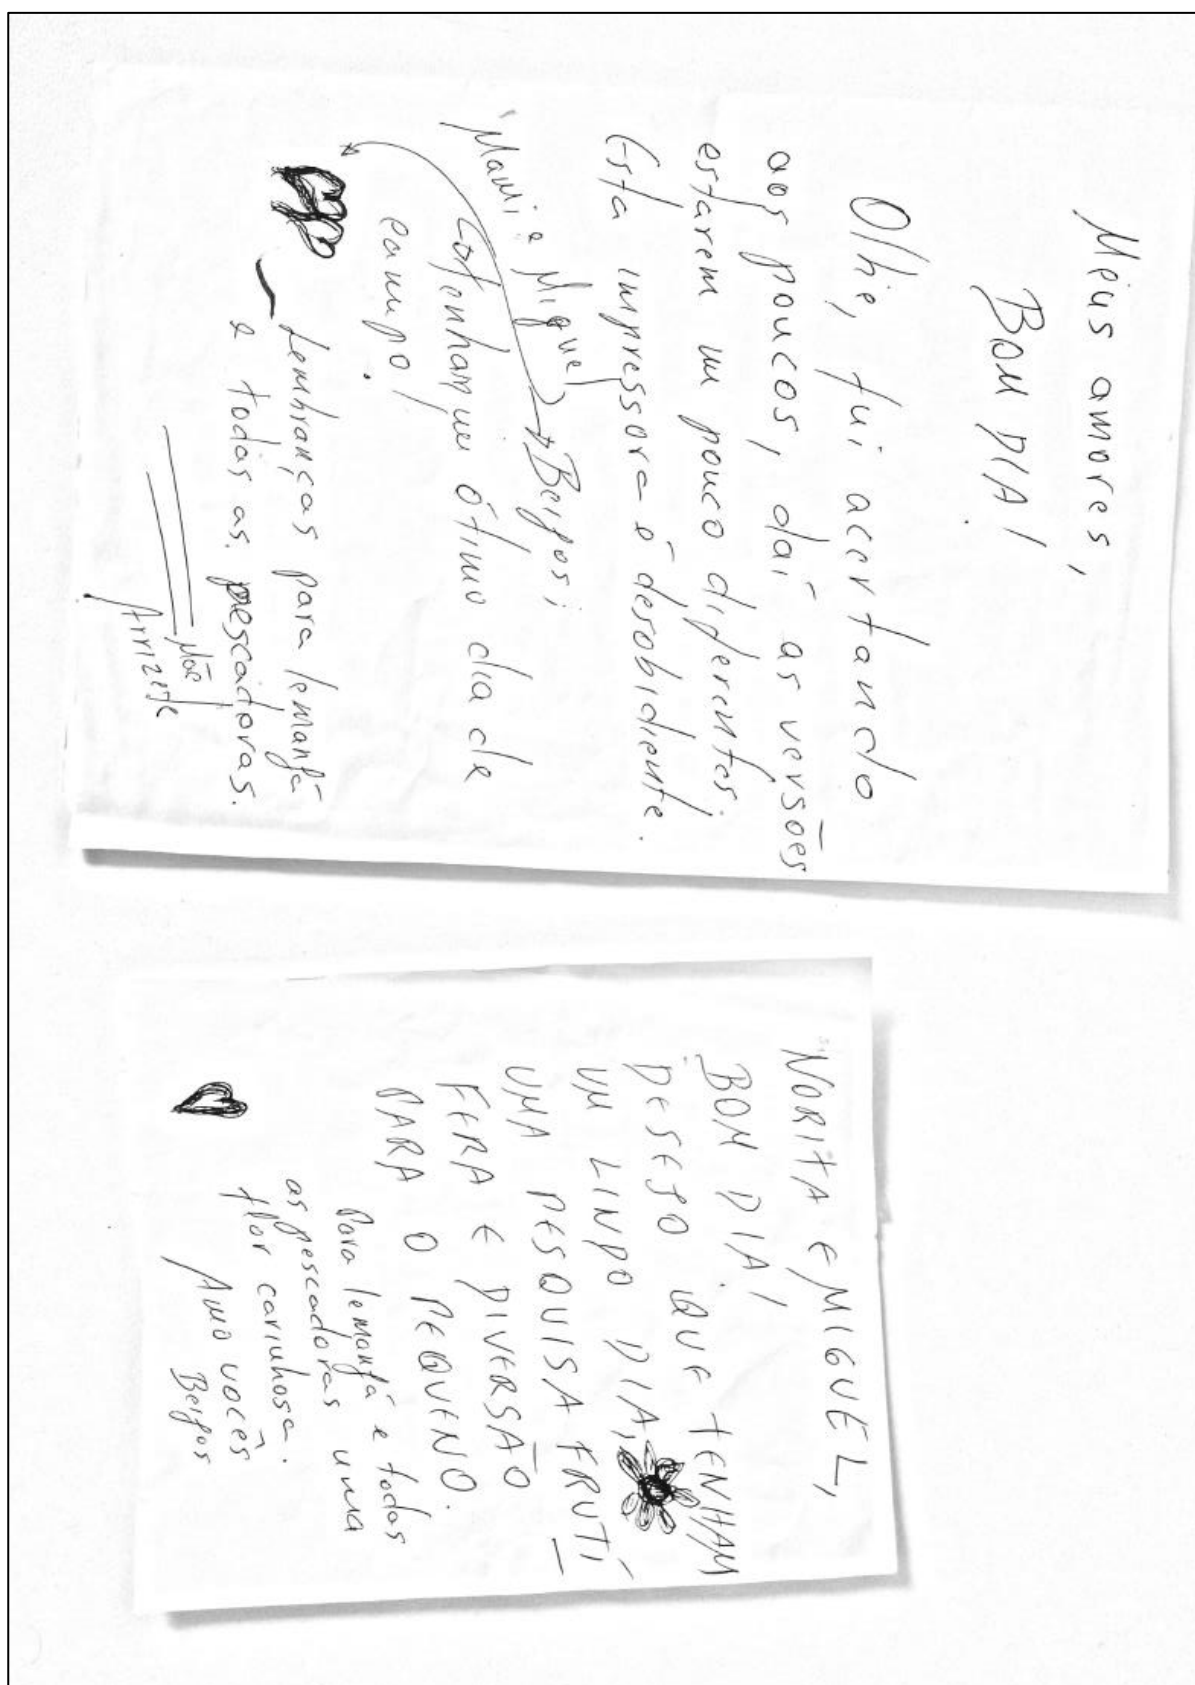 Meus amores,
BOM DIA!
Olhe, fui acertando
aos poucos, daí as versões
estarem um pouco diferentes.
Esta impressora é desobidiente.
Mami e Miguel
Beijos;
tenham um ótimo dia de
campo!
Lembranças para Iemanjá
e todas as pescadoras.
Mãe
Arrizete
NORITA E MIGUEL,
BOM DIA!
DESEJO QUE TENHAM
UM LINDO DIA,
UMA PESQUISA FRUTÍ
FERA E DIVERSÃO
PARA O PEQUENO.
Para Iemanjá e todas
as pescadoras uma
flor carinhosa.
Amo vocês
Beijos